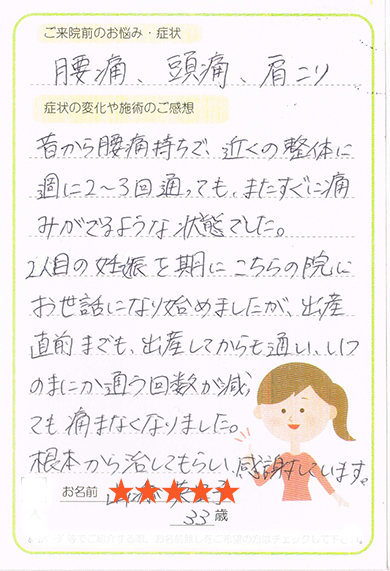 ご来院前のお悩み・症状
腰痛、頭痛、肩こり
症状の変化や施術のご感想
昔から腰痛持ちで、近くの整体に
週に2〜3回通っても、またすぐに痛
みがでるような状態でした。
2人目の妊娠を期にこちらの院に
お世話になり始めましたが、出産
直前までも、出産してからも通い、いつ
のまにか通う回数が減っ
ても痛まなくなりました。
根本から治してもらい、感謝しています。
お名前 ★★★★★
33歳